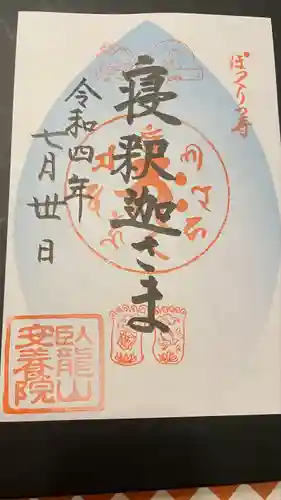 ぽっくり寺
寝釈迦さま
令和四年
七月廿日
臥龍山
安養院